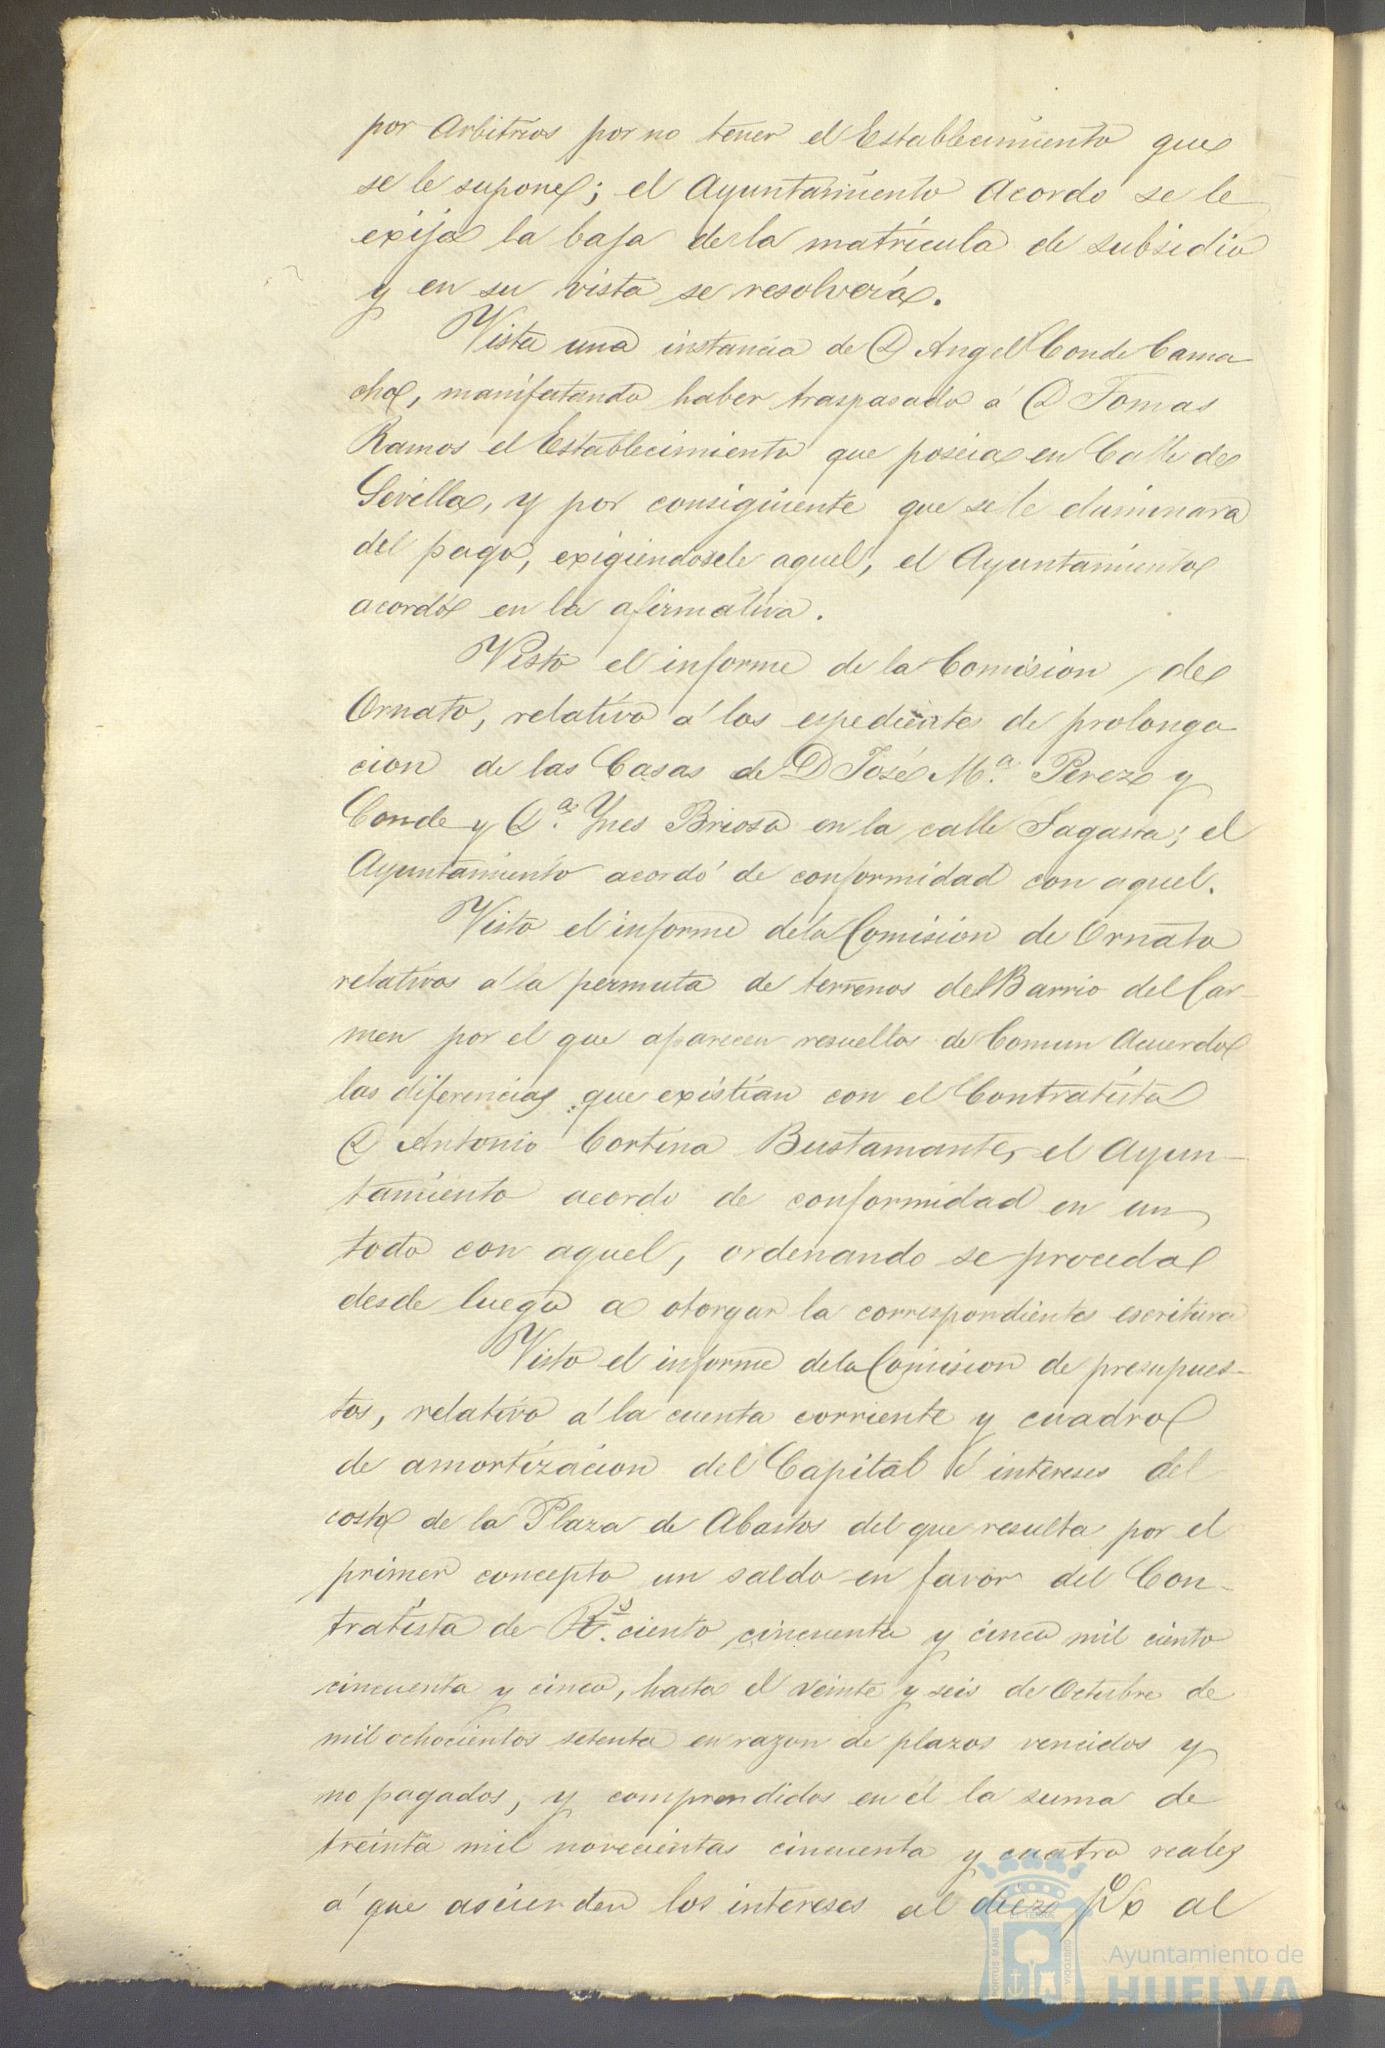 por Arbitrios por no tener el Establecimiento que
se le supone; el Ayuntamiento Acordo se le
exija la baja de la matrícula de subsidio
y en su vista se resolverá.
Vista una instancia de D Angel Conde Cama
cho, manifestando haber traspasado á D Tomas
Ramos el Establecimiento que poseia en Calle de
Sevilla, y por consiguiente que se le eliminara
del pago, exigiendosele aquel, el Ayuntamiento
acordó en la afirmativa.
Visto el informe de la Comision de
Ornato, relativo á los espediente de prolonga
cion de las Casas de D José Mª. Perez y
Conde y Dª. Ynes Briosa en la calle Sagasta; el
Ayuntamiento acordó de conformidad con aquel.
Visto el informe de la Comision de Ornato
relativos á la permuta de terrenos del Barrio del Car-
men por el que aparecen resueltos de Comun Acuerdo
las diferencias que existian con el Contratista
D Antonio Cortina Bustamante, el Ayun-
tamiento acordo de conformidad en un
todo con aquel, ordenando se proceda
desde luego a otorgar la correspondiente escritura
Visto el informe de la Comision de presupues-
tos, relativo á la cuenta corriente y cuadro
de amortizacion del Capital é intereses del
costo de la Plaza de Abastos del que resulta por el
primer concepto un saldo en favor del Con-
tratista de Rs. ciento cincuenta y cinco mil ciento
cincuenta y cinco, hasta el veinte y seis de Octubre de
mil ochocientos setenta en razon de plazos vencidos y
no pagados, y comprendidos en él la suma de
treinta mil novecientas cincuenta y cuatro reales
á que ascienden los intereses al diez p% al
Ayuntamiento de
HUELVA